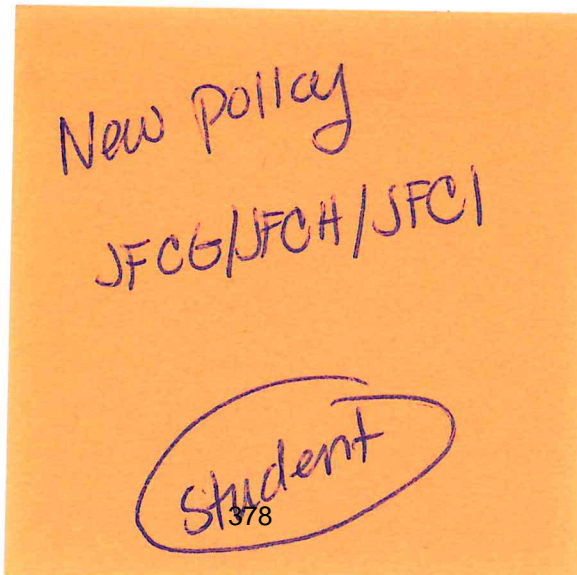 New policy
JFCG/JFCH/JFCI
Student
378